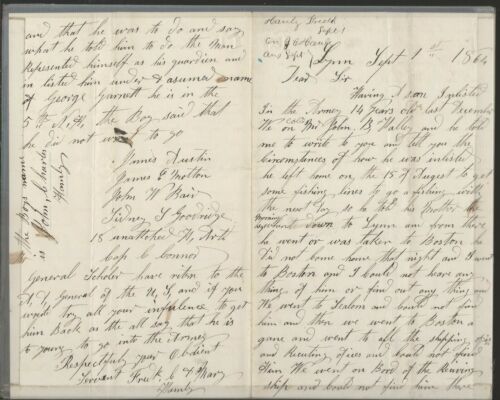 Lynn Sept 1st 1864
Dear Sir
Having A son Inlisted
In the Armey 14 years old last December
We on Mr John, B, Halley and he told
me to write to you and tell you the
Circumstances of how he was inlisted
he left home on, the 15 of August to get
some fishing lines to go a fishing with
the next Day so he told his Mother he
Morning
went down to Lynn and from there
he went or was taken to Boston he
Did not come home that night and I went
to Boston and I could not hear any
thing of him or find out any thing and
We went to Sealom and could not find
him and then we went to Boston a
gane and went to all the shipping ofices
and Recuting ofices and could not find
Him We went on Bord of the Receiving
ship and could not find him there
and that he was to do and say
what he told him to do the Man
Represented himself as his guardien and
in listed him under A asumed name
of George Garnett he is in the
5th N, H, the Boy said that
he did not want to go
James Austin
James G Molton
John W Bair
Sidney S Goodridge
18 unattched H, Arts
Cap, C Connor
General Scholer have reten to the
A J, General of the U, S, and if you
would try all your infulence to get
him Back as the all say that he is
to young to go into the Armey
Respectfuly your Obdient
Servant Fredk. C
the Boys name
is John, Charles